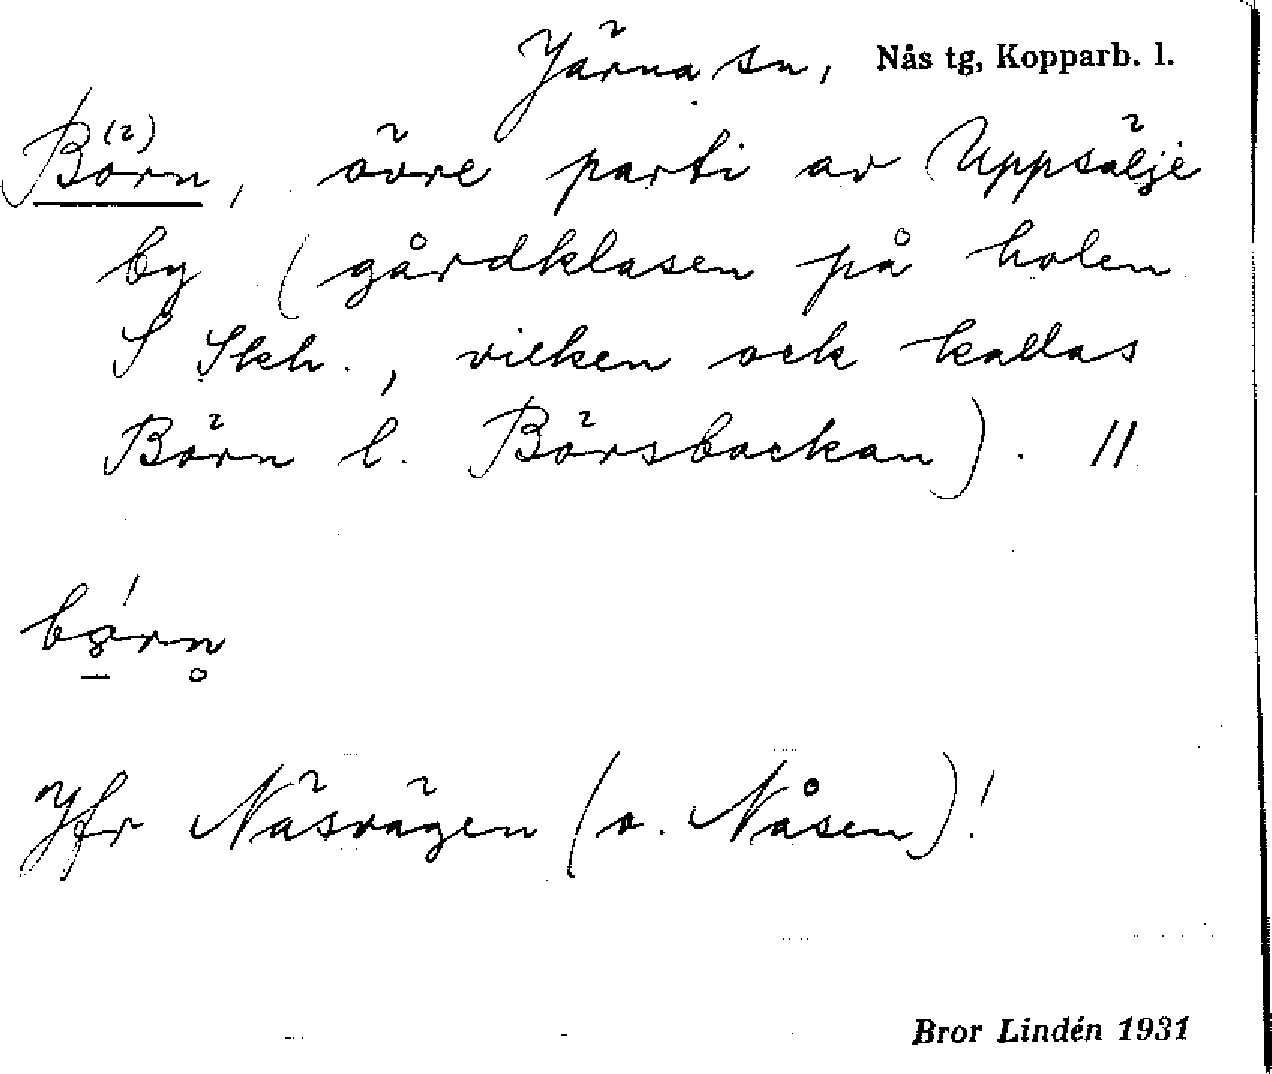 Järna sn, Nås tg, Kopparb. l.
Börn, övre parti av Uppsälje
by (gårdklasen på holen
S Skh., vilken ock kallas
Börn l. Börsbackan). //
börn
Jfr Näsvägen (o. Nåsen)!
Bror Lindén 1931